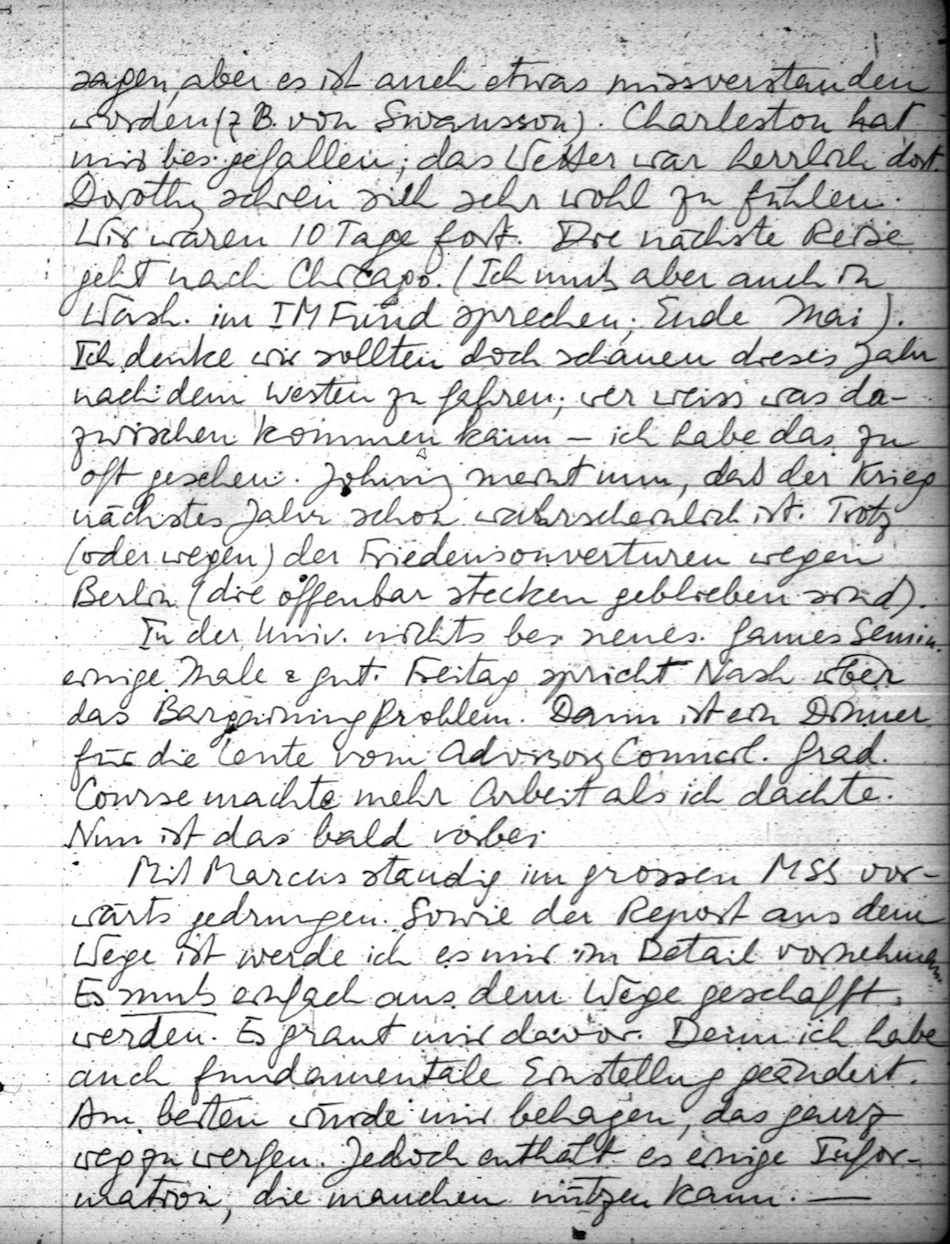 sagen, aber es ist auch etwas missverstanden
worden (z B. von Swansson). Charleston hat
mir bes. gefallen; das Wetter war herrlich dort.
Dorothy schien sich sehr wohl zu fühlen.
Wir waren 10 Tage fort. Die nächste Reise
geht nach Chicago. (Ich muß aber auch in
Wash. im IMFund sprechen; Ende Mai).
Ich denke wir sollten doch schauen dieses Jahr
nach dem Westen zu fahren; wer weiss was da-
zwischen kommen kann – ich habe das zu
oft gesehen. Johnny meint nun, daß der Krieg
nächstes Jahr schon wahrscheinlich ist. Trotz
(oder wegen) der Friedensouverturen wegen
Berlin (die offenbar stecken geblieben sind).
In der Univ. nichts bes. neues. Games Semin.
einige Male & gut. Freitag spricht Nash über
das Bargaining Problem. Dann ist ein Dinner
für die Leute vom Advisory Council. Grad.
Course machte mehr Arbeit als ich dachte.
Nun ist das bald vorbei
Mit Marcus ständig im grossen MSS vor-
wärts gedrungen. Sowie der Report aus dem
Wege ist werde ich es mir im Detail vornehmen.
Es muß einfach aus dem Wege geschafft
werden. Es graut mir davor. Denn ich habe
auch fundamentale Einstellung geändert.
Am besten würde mir behagen, das ganz
wegzuwerfen. Jedoch enthält es einige Infor-
mation, die manchen nützen kann. —